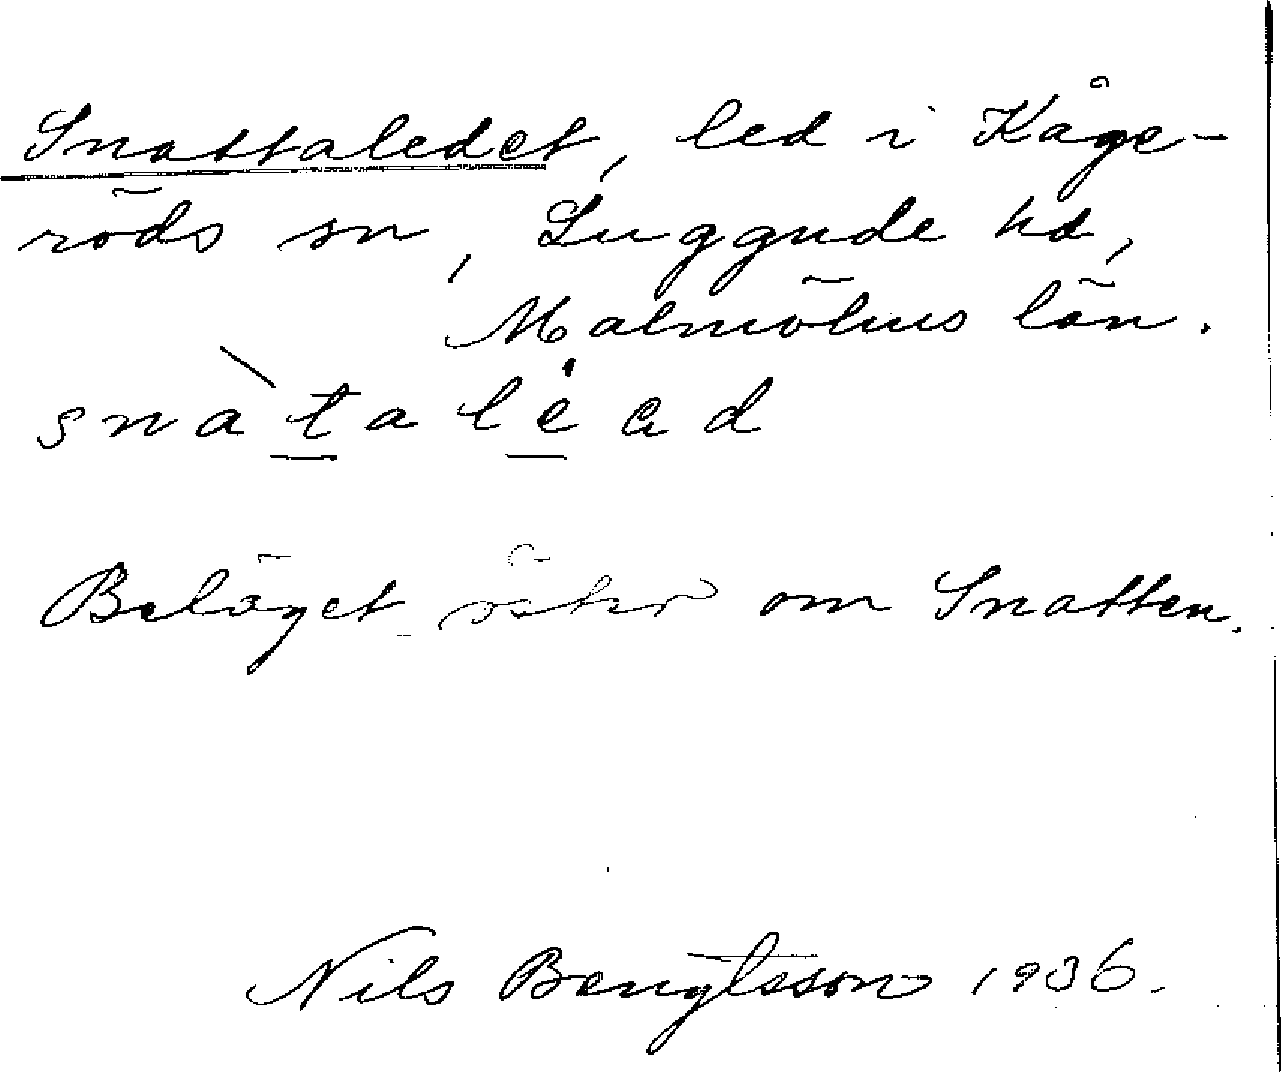 Snattaledet, led i Kåge-
röds sn, Luggude hd,
Malmöhus län.
snàtaléad
Beläget öster om Snatten.
Nils Bengtsson 1936.